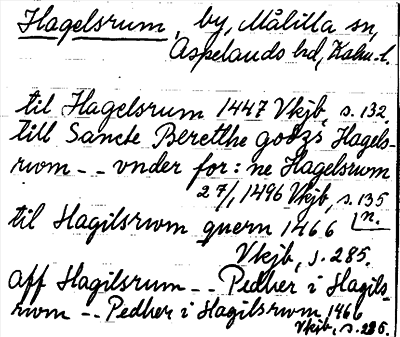 Hagelsrum, by, Målilla sn,
Aspelands hd, Kalm. l.
til Hagelsrum 1447 Vkjb, s. 132.
till Sancte Beretthe godzs Hagels-
rwm -- vnder for:ne Hagelsrwm
27/1 1496 Vkjb, s. 135
n.
til Hagilsrwm quern 1466
Vkjb, s. 285.
aff Hagilsrum -- Pedher i Hagils-
rwm -- Pedher i Hagilsrwm 1466
Vkjb, s. 285.